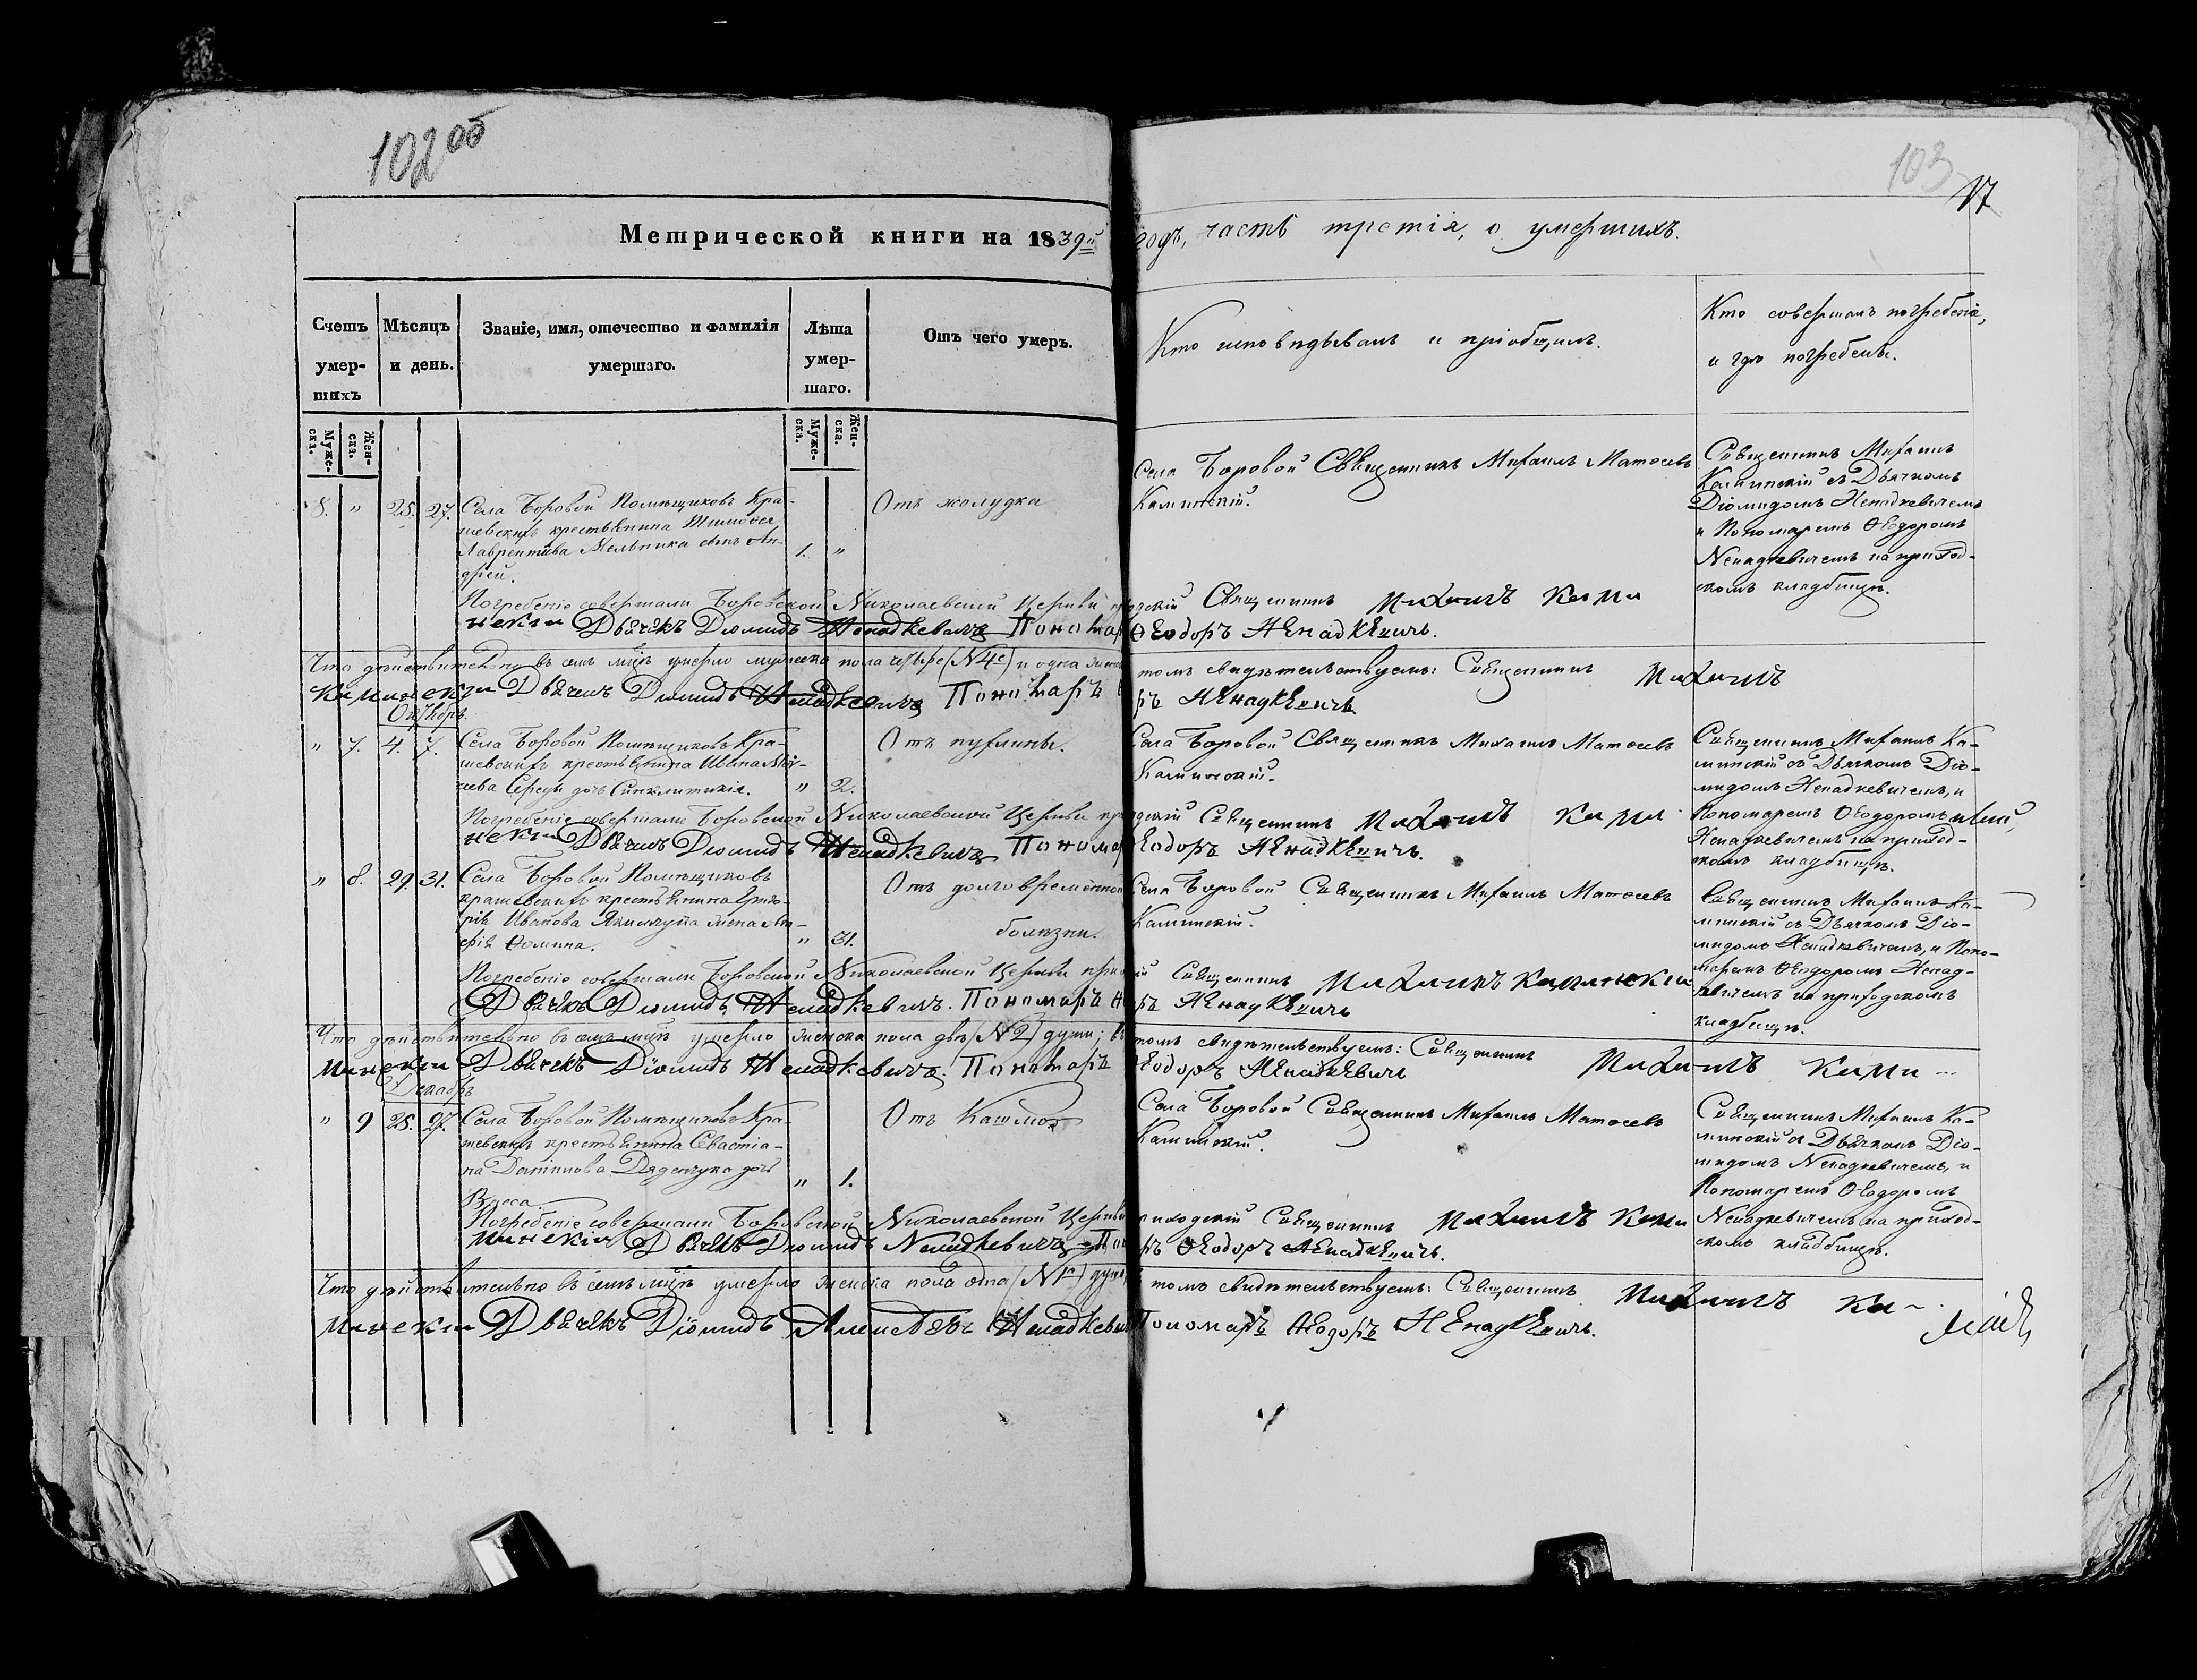 102 об
103
17
Метрической книги на 1839й годъ, часть третія, о умершихъ.
Счетъ умер-шихъ
Мѣсяцъ и день.
Званіе, имя, отечество и фамилія умершаго.
Лѣта умер-шаго.
Отъ чего умеръ.
Кто исповѣдывалъ и пріобщилъ.
Кто совершалъ погребеніе, и гдѣ погребенъ.
Муже-ска.
Жен-ска.
Муже-ска.
Жен-ска.
8. " 25. 27. Села Боровой Помѣщиковъ Кра-
шевскихъ крестьянина Тимофея
Лаврентіева Мельника сынъ Ан-
дрей.
1. "
Отъ жолудка
Села Боровой Священникъ Михаилъ Матѳеевъ
Каминскій.
Священникъ Михаилъ
Каминскій съ Дьячкомъ
Діомидомъ Ненадкевичемъ
и Пономаремъ Ѳеодоромъ
Ненадкевичемъ на приход-
скомъ кладбищѣ.
Погребеніе совершали Боровской Николаевской Церкви приходскій Священникъ Михаилъ Ками
нскій Дьячекъ Діомидъ Ненадкевичъ Пономаръ Ѳеодоръ Ненадкевичъ.
Что дѣйствительно въ семъ мцѣ умерло мужеска пола четыре (№ 4е) и одна томъ свидѣтельствуемъ: Священникъ Михаилъ
Каминскій Дьячекъ Діомидъ Ненадкевичъ Пономаръ Ненадкевичъ
Октябрь.
" 7. 4. 7. Села Боровой Помѣщиковъ Кра-
шевскихъ крестьянина Ивана
Середы дочь Синклитикія.
" 2.
Отъ пухлины.
Села Боровой Священникъ Михаилъ Матѳеевъ
Каминскій.
Священникъ Михаилъ Ка-
минскій съ Дьячкомъ Діо-
мидомъ Ненадкевичемъ, и
Пономаремъ Ѳеодоромъ
Ненадкевичемъ на приход-
скомъ кладбищѣ.
Погребеніе совершали Боровской Николаевской Церкви приходскій Священникъ Михаилъ Ками
нскій Дьячекъ Діомидъ Ненадкевичъ Пономаръ Ѳеодоръ Ненадкевичъ.
" 8. 29. 31. Села Боровой Помѣщиковъ
Крашевскихъ крестьянина Григо-
рія Иванова Якимчука жена
Ѳомина.
" 31.
Отъ долговременной
болѣзни.
Села Боровой Священникъ Михаилъ Матѳеевъ
Каминскій.
Священникъ Михаилъ Ка-
минскій съ Дьячкомъ Діо-
мидомъ Ненадкевичемъ, и Поно-
маремъ Ѳеодоромъ Ненад-
кевичемъ на приходскомъ
кладбищѣ.
Погребеніе совершали Боровской Николаевской Церкви Священникъ Михаилъ Каминскій
Дьячекъ Діомидъ Ненадкевичъ. Пономаръ Ненадкевичъ
Что дѣйствительно въ семъ мцѣ умерло женска пола двѣ (№ 2) души; въ томъ свидѣтельствуемъ: Священникъ Михаилъ Ками
минскій Дьячекъ Діомидъ Ненадкевичъ. Пономаръ Ѳеодоръ Ненадкевичъ
Декабрь
" 9 25. 27. Села Боровой Помѣщиковъ Кра-
шевскихъ крестьянина Севастіа-
на Дяденчука дочь
" 1.
Отъ Кашлю
Села Боровой Священникъ Михаилъ Матѳеевъ
Каминскій.
Священникъ Михаилъ Ка-
минскій съ Дьячкомъ Діо-
мидомъ Ненадкевичемъ, и
Пономаремъ Ѳеодоромъ
Ненадкевичемъ на приход-
скомъ кладбищѣ.
Погребеніе совершали Боровской Николаевской Церкви приходскій Священникъ Михаилъ Ками
минскій Дьячекъ Діомидъ Ненадкевичъ Ѳеодоръ Ненадкевичъ.
Что дѣйствительно въ семъ мцѣ умерло женска пола одна (№ 1а) душа томъ свидѣтельствуемъ: Священникъ Михаилъ Ка
минскій Дьячекъ Діомидъ Ненадкевичъ Пономаръ Ѳеодоръ Ненадкевичъ.